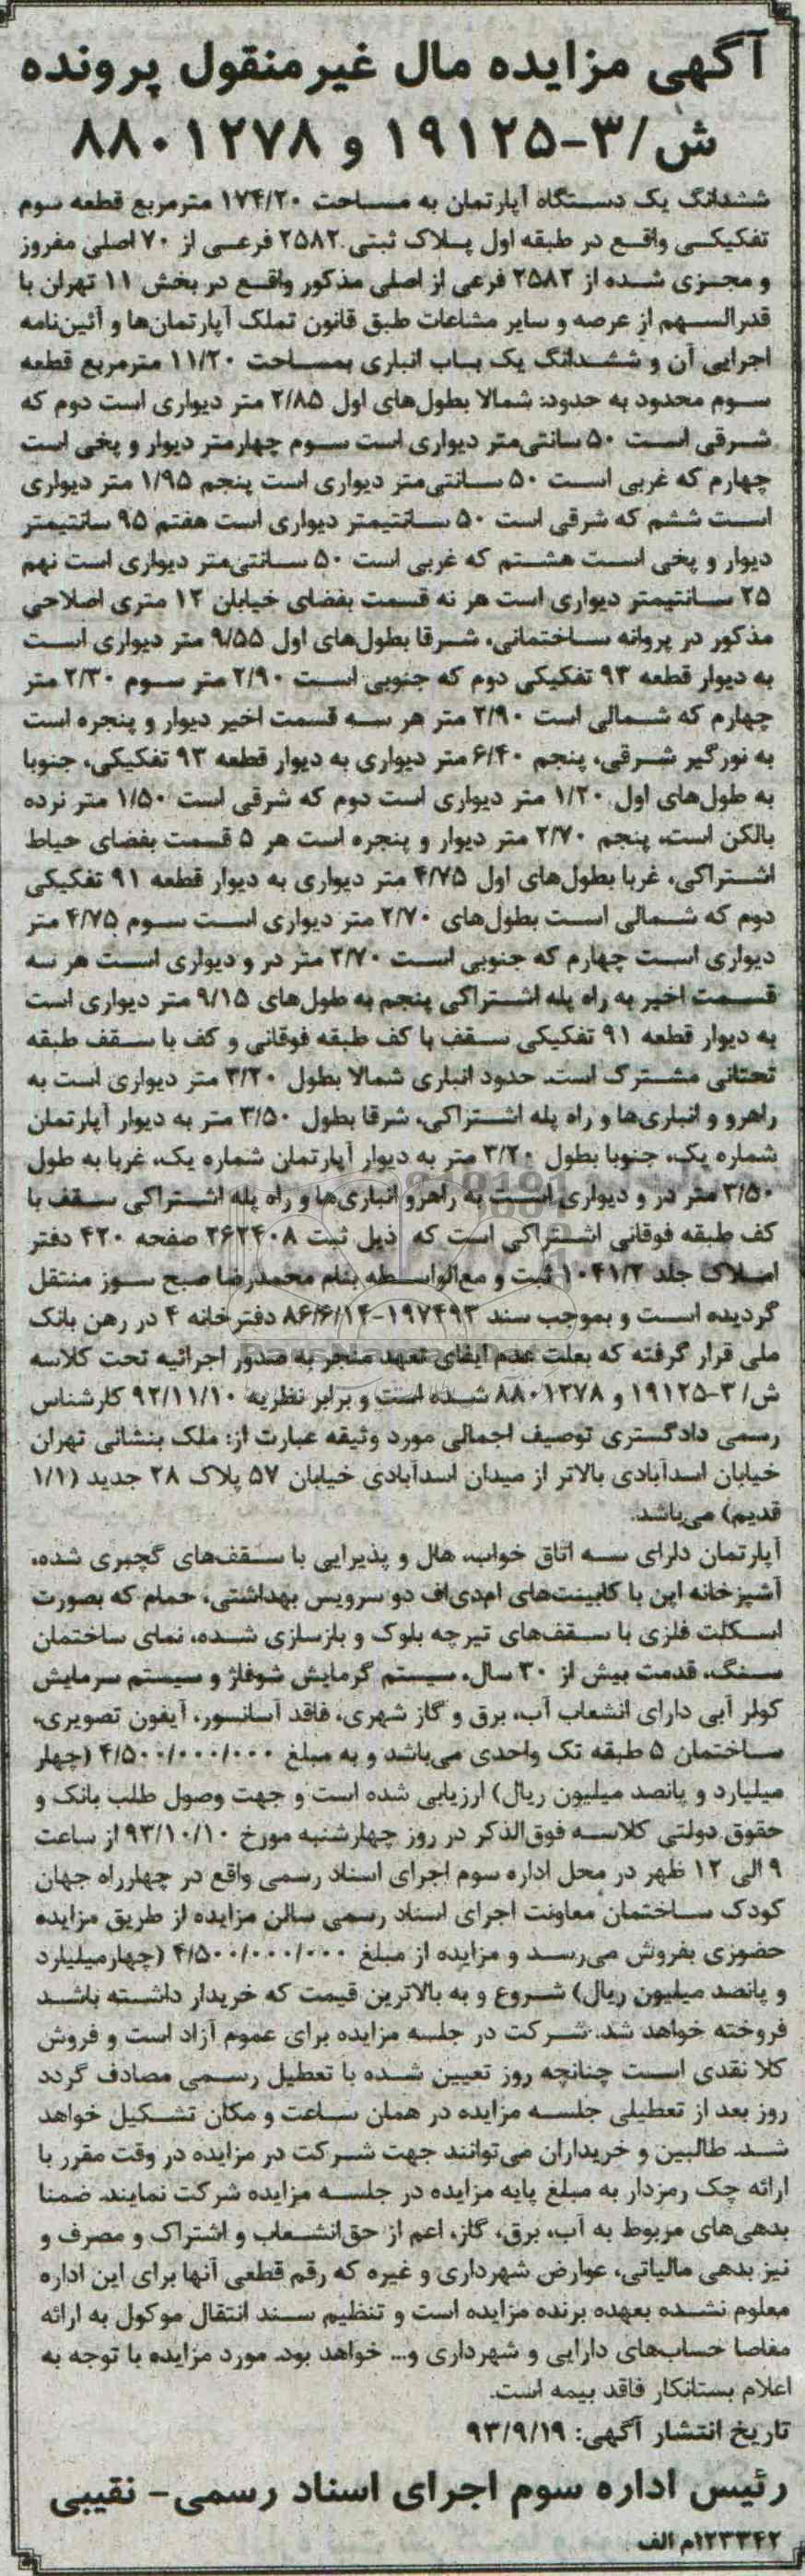 آگهی مزایده مال غیرمنقول پرونده
ش/۳-۱۹۱۲۵ و ۸۸۰۱۲۷۸
ششدانگ یک دستگاه آپارتمان به مساحت ۱۷۴/۲۰ مترمربع قطعه سوم
تفکیکی واقع در طبقه اول پلاک ثبتی ۲۵۸۲ فرعی از ۷۰ اصلی مفروز
و مجزی شده از ۲۵۸۲ فرعی از اصلی مذکور واقع در بخش ۱۱ تهران با
قدرالسهم از عرصه و سایر مشاعات طبق قانون تملک آپارتمان‌ها و آئین‌نامه
اجرایی آن و ششدانگ یک باب انباری بمساحت ۱۱/۲۰ مترمربع قطعه
سوم محدود به حدود: شمالا بطول‌های اول ۲/۸۵ متر دیواری است دوم که
شرقی است ۵۰ سانتی‌متر دیواری است سوم چهارمتر دیوار و پخی است
چهارم که غربی است ۵۰ سانتی‌متر دیواری است پنجم ۱/۹۵ متر دیواری
است ششم که شرقی است ۵۰ سانتیمتر دیواری است هفتم ۹۵ سانتیمتر
دیوار و پخی است هشتم که غربی است ۵۰ سانتی‌متر دیواری است نهم
۲۵ سانتیمتر دیواری است هر نه قسمت بفضای خیابان ۱۲ متری اصلاحی
مذکور در پروانه ساختمانی، شرقا بطول‌های اول ۹/۵۵ متر دیواری است
به دیوار قطعه ۹۳ تفکیکی دوم که جنوبی است ۲/۹۰ متر سوم ۲/۳۰ متر
چهارم که شمالی است ۲/۹۰ متر هر سه قسمت اخیر دیوار و پنجره است
به نورگیر شرقی، پنجم ۶/۴۰ متر دیواری به دیوار قطعه ۹۳ تفکیکی، جنوبا
به طول‌های اول ۱/۲۰ متر دیواری است دوم که شرقی است ۱/۵۰ متر نرده
بالکن است، پنجم ۲/۷۰ متر دیوار و پنجره است هر ۵ قسمت بفضای حیاط
اشتراکی، غربا بطول‌های اول ۴/۷۵ متر دیواری به دیوار قطعه ۹۱ تفکیکی
دوم که شمالی است بطول‌های ۲/۷۰ متر دیواری است سوم ۴/۷۵ متر
دیواری است چهارم که جنوبی است ۲/۷۰ متر در و دیواری است هر سه
قسمت اخیر به راه پله اشتراکی پنجم به طول‌های ۹/۱۵ متر دیواری است
به دیوار قطعه ۹۱ تفکیکی سقف با کف طبقه فوقانی و کف با سقف طبقه
تحتانی مشترک است. حدود انباری شمالا بطول ۳/۲۰ متر دیواری است به
راهرو و انباری‌ها و راه پله اشتراکی، شرقا بطول ۳/۵۰ متر به دیوار آپارتمان
شماره یک، جنوبا بطول ۳/۲۰ متر به دیوار آپارتمان شماره یک، غربا به طول
۳/۵۰ متر در و دیواری است به راهرو انباری‌ها و راه پله اشتراکی سقف با
کف طبقه فوقانی اشتراکی است که ذیل ثبت ۲۶۲۴۰۸ صفحه ۴۲۰ دفتر
املاک جلد ۱۰۴۱/۲ ثبت و مع‌الواسطه بنام محمدرضا صبح سوز منتقل
گردیده است و بموجب سند ۱۹۷۴۹۳-۸۶/۶/۱۴ دفترخانه ۴ در رهن بانک
ملی قرار گرفته که بعلت عدم ایفای تعهد منجر به صدور اجرائیه تحت کلاسه
ش/ ۳-۱۹۱۲۵ و ۸۸۰۱۲۷۸ شده است و برابر نظریه ۹۲/۱۱/۱۰ کارشناس
رسمی دادگستری توصیف اجمالی مورد وثیقه عبارت از: ملک بنشانی تهران
خیابان اسدآبادی بالاتر از میدان اسدآبادی خیابان ۵۷ پلاک ۲۸ جدید (۱/۱
قدیم) می‌باشد.
آپارتمان دارای سه اتاق خواب، هال و پذیرایی با سقف‌های گچبری شده،
آشپزخانه اپن با کابینت‌های ام‌دی‌اف دو سرویس بهداشتی، حمام که بصورت
اسکلت فلزی با سقف‌های تیرچه بلوک و بازسازی شده، نمای ساختمان
سنگ، قدمت بیش از ۳۰ سال، سیستم گرمایش شوفاژ و سیستم سرمایش
کولر آبی دارای انشعاب آب، برق و گاز شهری، فاقد آسانسور، آیفون تصویری،
ساختمان ۵ طبقه تک واحدی می‌باشد و به مبلغ ۴/۵۰۰/۰۰۰/۰۰۰ (چهار
میلیارد و پانصد میلیون ریال) ارزیابی شده است و جهت وصول طلب بانک و
حقوق دولتی کلاسه فوق‌الذکر در روز چهارشنبه مورخ ۹۳/۱۰/۱۰ از ساعت
۹ الی ۱۲ ظهر در محل اداره سوم اجرای اسناد رسمی واقع در چهارراه جهان
کودک ساختمان معاونت اجرای اسناد رسمی سالن مزایده از طریق مزایده
حضوری بفروش می‌رسد و مزایده از مبلغ ۴/۵۰۰/۰۰۰/۰۰۰ (چهارمیلیارد
و پانصد میلیون ریال) شروع و به بالاترین قیمت که خریدار داشته باشد
فروخته خواهد شد. شرکت در جلسه مزایده برای عموم آزاد است و فروش
کلا نقدی است چنانچه روز تعیین شده با تعطیل رسمی مصادف گردد
روز بعد از تعطیلی جلسه مزایده در همان ساعت و مکان تشکیل خواهد
شد. طالبین و خریداران می‌توانند جهت شرکت در مزایده در وقت مقرر با
ارائه چک رمزدار به مبلغ پایه مزایده در جلسه مزایده شرکت نمایند. ضمنا
بدهی‌های مربوط به آب، برق، گاز، اعم از حق‌انشعاب و اشتراک و مصرف و
نیز بدهی مالیاتی، عوارض شهرداری و غیره که رقم قطعی آنها برای این اداره
معلوم نشده بعهده برنده مزایده است و تنظیم سند انتقال موکول به ارائه
مفاصا حساب‌های دارایی و شهرداری و... خواهد بود. مورد مزایده با توجه به
اعلام بستانکار فاقد بیمه است.
تاریخ انتشار آگهی: ۹۳/۹/۱۹
رئیس اداره سوم اجرای اسناد رسمی- نقیبی
۱۲۳۳۴۲م الف